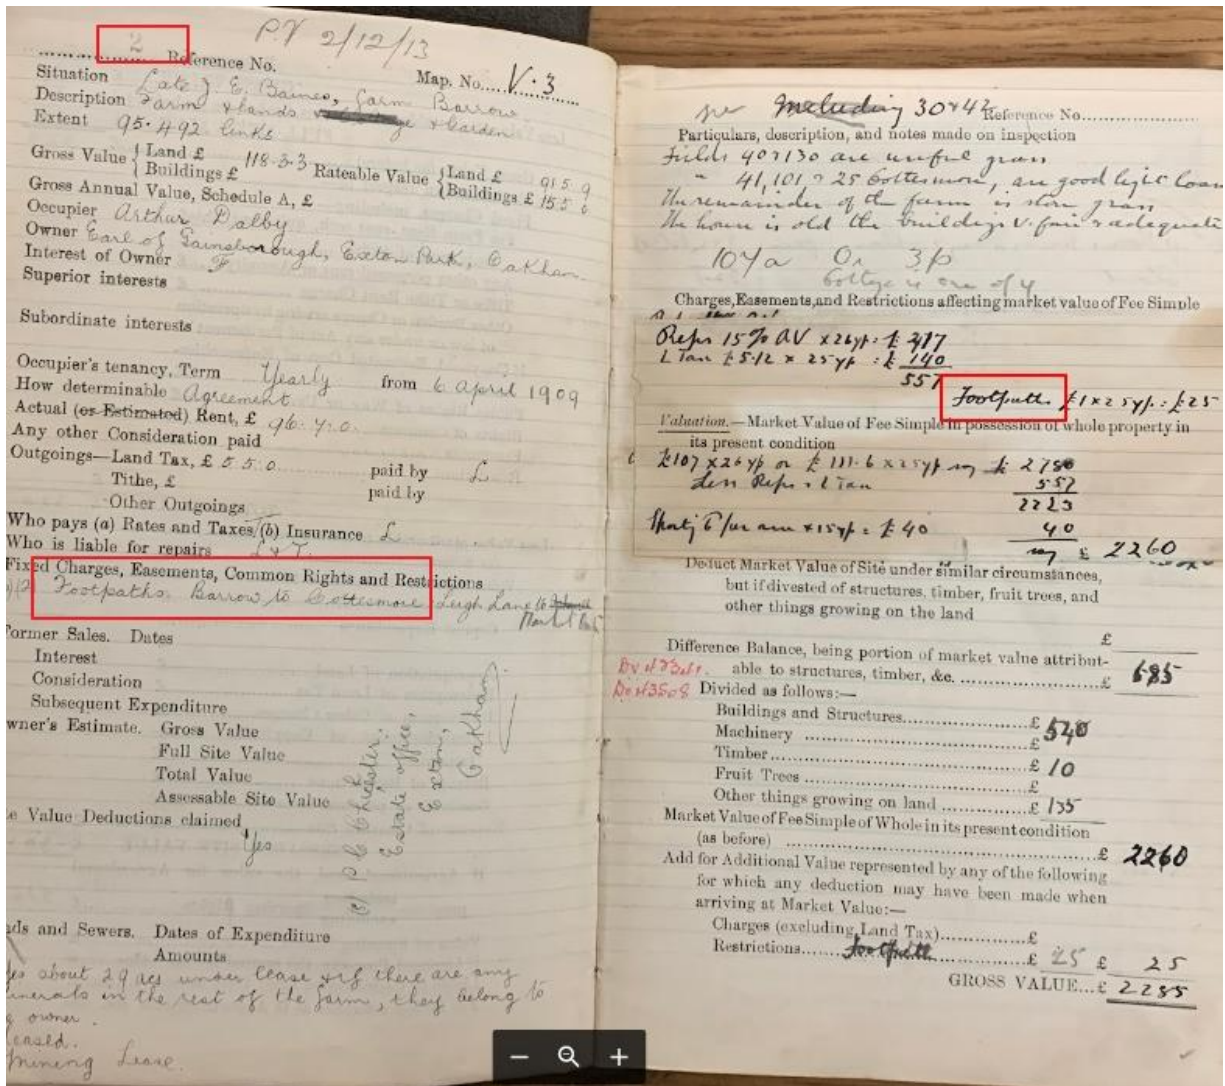 P.V 2/12/13
2 Reference No. Map. No. V.3
Situation Late J. E. Baines, farm Barrow
Description Farm & lands & Garden
Extent 95.492 links
Gross Value { Land £ Buildings £ 118-3-3 Rateable Value { Land £ 91 5 9 Buildings £ 15 5 6
Gross Annual Value, Schedule A, £
Occupier Arthur Dalby
Owner Earl of Gainsborough, Exton Park, Oakham
Interest of Owner F
Superior interests
Subordinate interests
Occupier's tenancy, Term Yearly from 6 April 1909
How determinable Agreement
Actual (or Estimated) Rent, £ 96.4.0
Any other Consideration paid
Outgoings—Land Tax, £ 5 5 0 paid by L
Tithe, £ paid by
Other Outgoings
Who pays (a) Rates and Taxes (b) Insurance L
Who is liable for repairs L & T.
Fixed Charges, Easements, Common Rights and Restrictions
(2) Footpaths. Barrow to Cottesmore, Leigh Lane to
Former Sales. Dates
Interest
Consideration
Subsequent Expenditure
wner's Estimate. Gross Value
Full Site Value
Total Value
Assessable Site Value
e Value Deductions claimed
Yes
P. C. Chichester,
Estate office,
Exton,
Oakham
ds and Sewers. Dates of Expenditure
Amounts
yes about 29 acs under lease & if there are any
minerals in the rest of the farm, they belong to
owner.
leased.
Mining Lease.
Including 30 & 42 Reference No.
Particulars, description, and notes made on inspection
Fields 40 & 130 are useful grass
" 41, 101 & 25 Cottesmore, are good light loam
The remainder of the farm is store grass
The house is old the buildings v. fair & adequate
107a 0r 3p
Cottage is one of 4
Charges, Easements, and Restrictions affecting market value of Fee Simple
Reprs 15% AV x 26yp : £ 417
L Tax £5.12 x 25yp : £ 140
557
Footpaths £1 x 25yp : £25
Valuation.—Market Value of Fee Simple in possession of whole property in
its present condition
£107 x 26yp or £111.6 x 25yp say £ 2780
Less Reprs & L Tax 557
2223
Sporting 6 per acre x 15yp = £40 40
say £ 2260
Deduct Market Value of Site under similar circumstances,
but if divested of structures, timber, fruit trees, and
other things growing on the land
£
Difference Balance, being portion of market value attribut-
able to structures, timber, &c. £ 685
Divided as follows:—
Buildings and Structures £ 540
Machinery £
Timber £ 10
Fruit Trees £
Other things growing on land £ 135
Market Value of Fee Simple of Whole in its present condition
(as before) £ 2260
Add for Additional Value represented by any of the following
for which any deduction may have been made when
arriving at Market Value:—
Charges (excluding Land Tax) £
Restrictions footpath £ 25 £ 25
GROSS VALUE...£ 2285